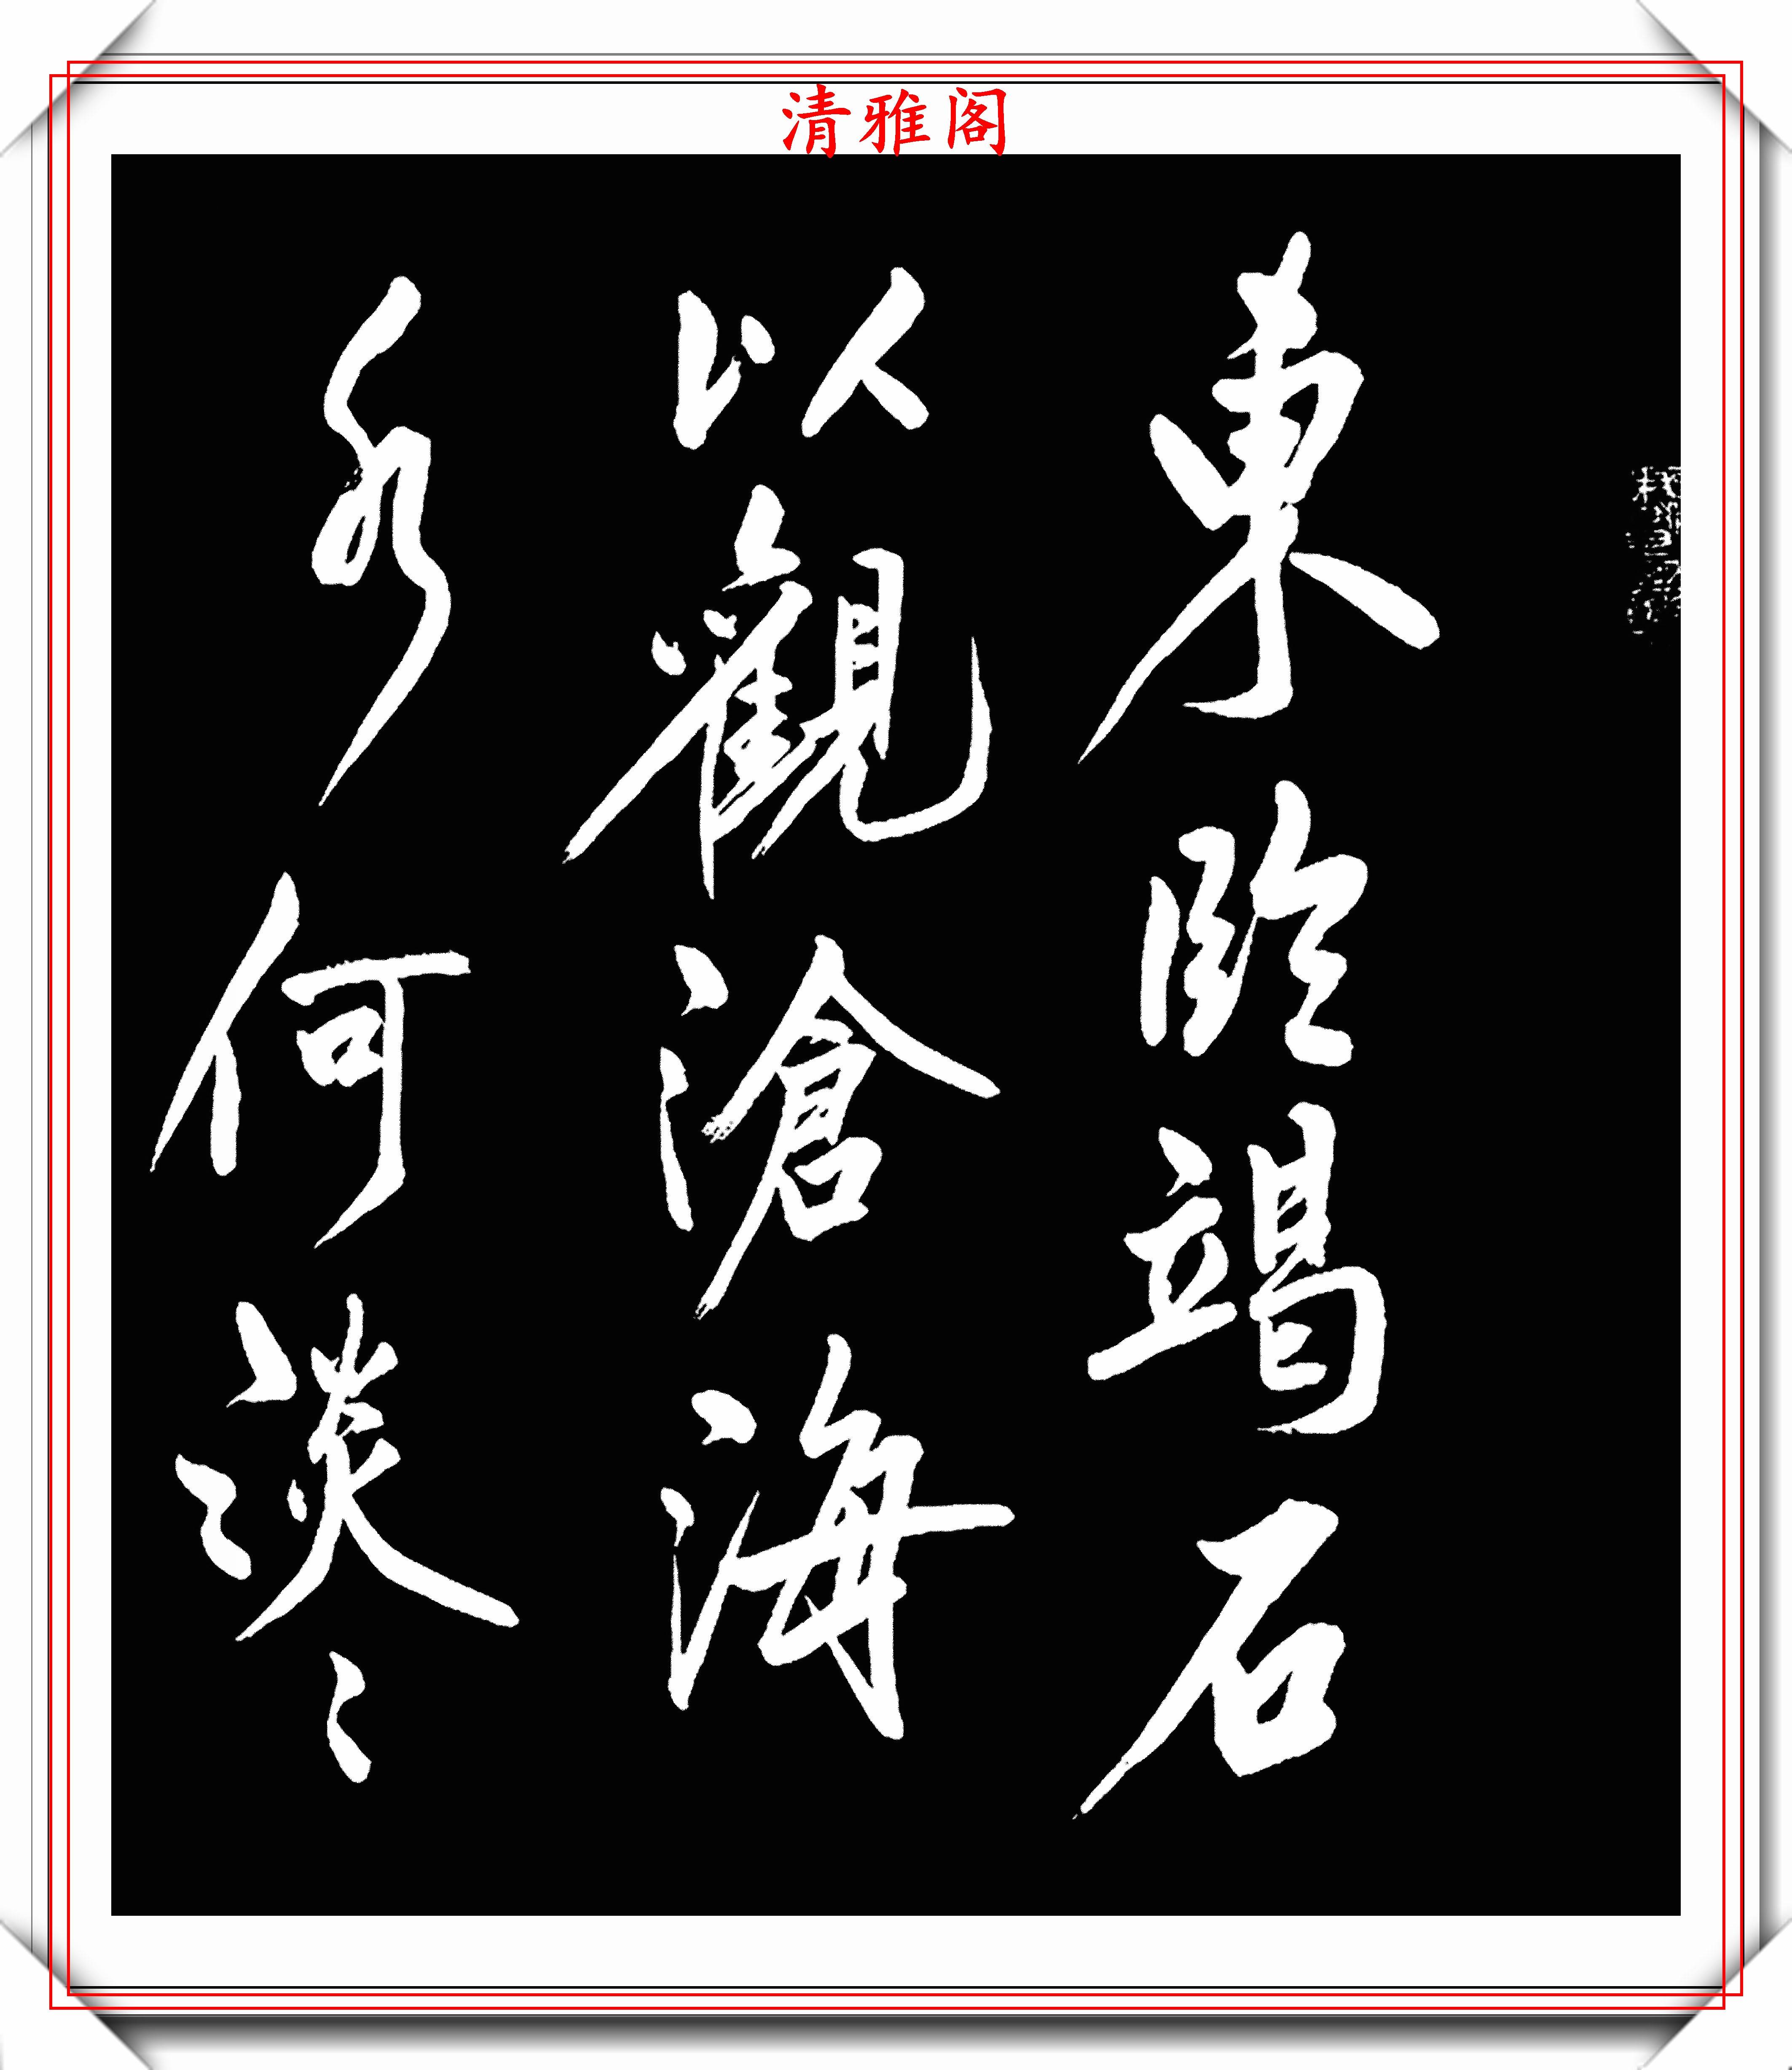 清雅阁
東臨碣石
以觀滄海
水何淡〻